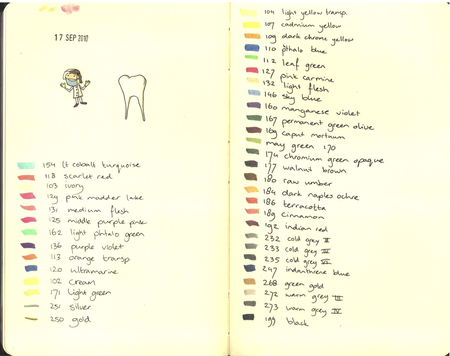 17 SEP 2010
154 lt cobalt turquoise
118 scarlet red
103 ivory
129 pink madder lake
131 medium flesh
125 middle purple pink
162 light phtalo green
136 purple violet
113 orange transp
120 ultramarine
102 cream
171 light green
251 silver
250 gold
104 light yellow transp.
107 cadmium yellow
109 dark chrome yellow
110 phtalo blue
112 leaf green
127 pink carmine
132 light flesh
146 sky blue
160 manganese violet
167 permanent green olive
169 caput mortuum
may green 170
174 chromium green opaque
177 walnut brown
180 raw umber
184 dark naples ochre
186 terracotta
189 cinnamon
192 indian red
232 cold grey III
233 cold grey IV
235 cold grey VI
247 indanthrene blue
268 green gold
272 warm grey III
273 warm grey IV
199 black